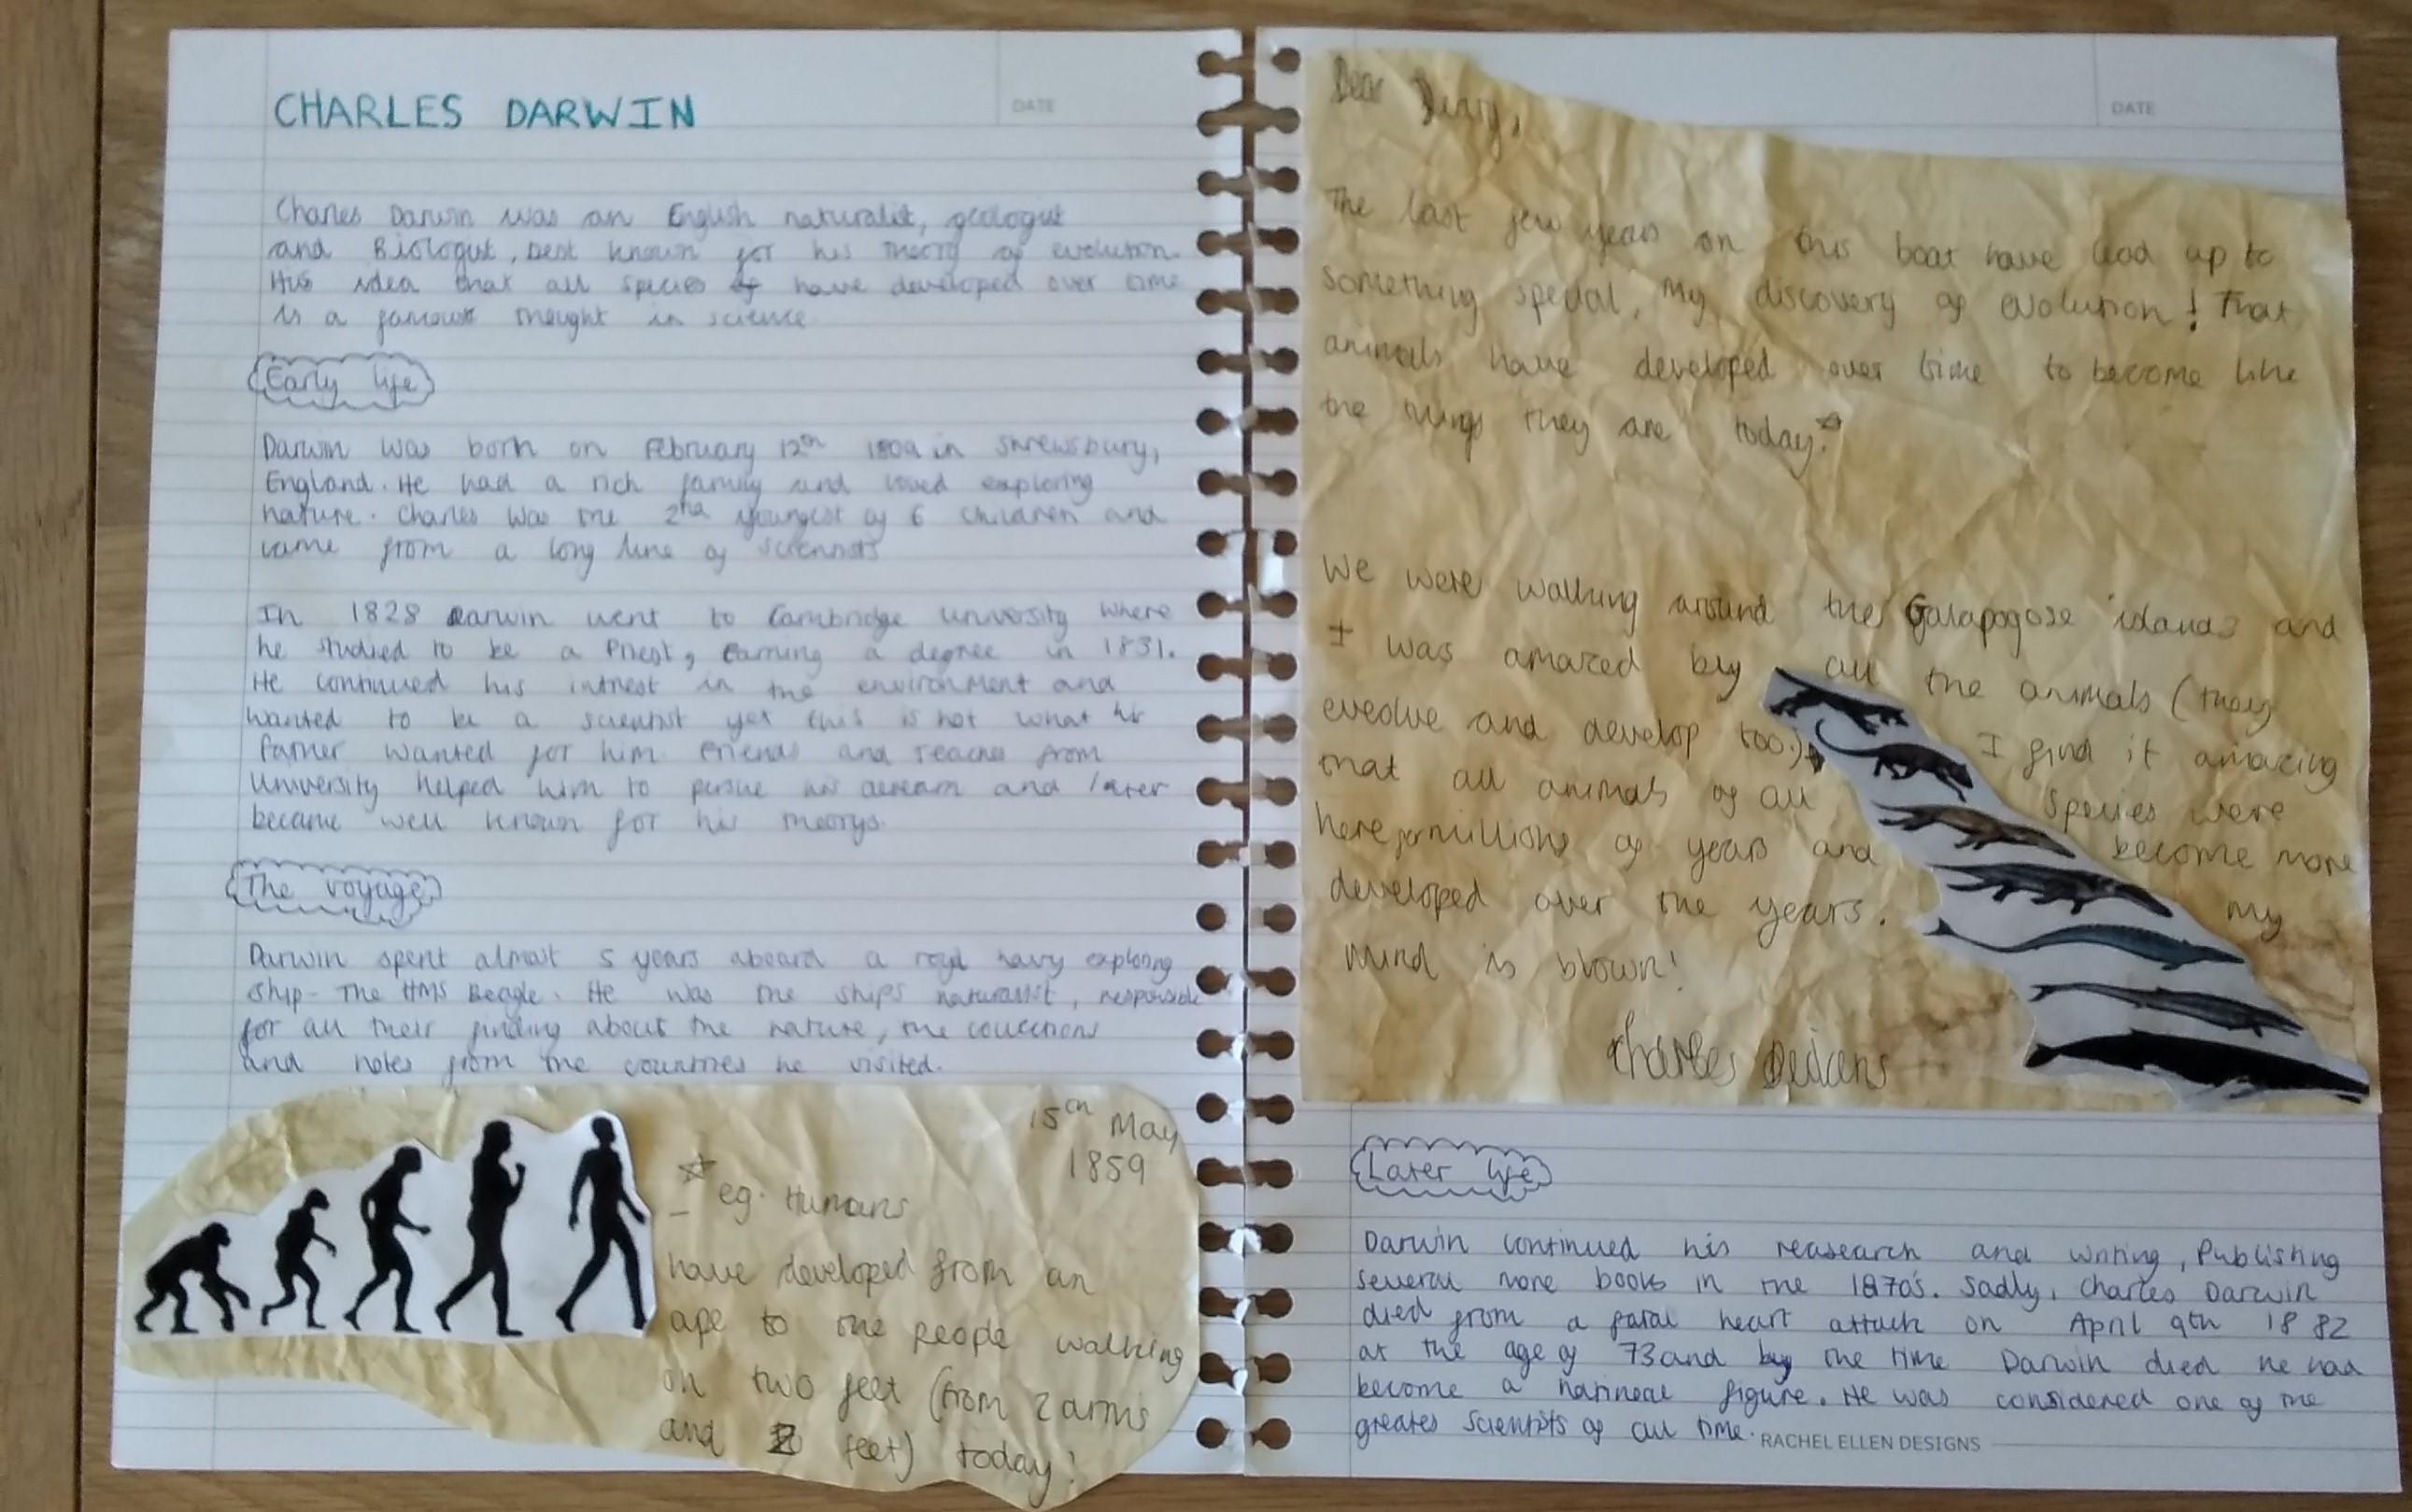 CHARLES DARWIN
DATE
Charles Darwin was an English naturalist, geologist
and Biologist, best known for his theory of evolution.
His idea that all species of have developed over time
is a famous thought in science
Early life
Darwin was born on February 12th 1809 in Shrewsbury,
England. He had a rich family and loved exploring
nature. Charles was the 2nd youngest of 6 children and
came from a long line of scientists
In 1828 Darwin went to Cambridge University where
he studied to be a Priest, Earning a degree in 1831.
He continued his intrest in the environment and
wanted to be a scientist yet this is not what his
father wanted for him. Friends and teacher from
University helped him to persue his dream and later
became well known for his theorys.
The voyage
Darwin spent almost 5 years aboard a royal navy exploring
ship - The HMS Beagle. He was the ships naturalist, responsible
for all their finding about the nature, the collections
and notes from the countries he visited.
15th May
1859
eg. Humans
have developed from an
ape to the people walking
on two feet (from 2 arms
and 2 feet) today!
DATE
Dear Diary,
The last few years on this boat have lead up to
something special, my discovery of evolution! That
animals have developed over time to become like
the things they are today.
We were walking around the Galapagose islands and
I was amazed by all the animals (they
eveolve and develop too.) I find it amazing
that all animals of all species were
here for millions of years and become more
developed over the years. my
mind is blown!
Charles
Later life
Darwin continued his reasearch and writing, Publishing
several more books in the 1870's. Sadly, Charles Darwin
died from a fatal heart attack on April 9th 1882
at the age of 73 and by the time Darwin died he had
become a figure. He was considered one of the
greates scientists of all time.
RACHEL ELLEN DESIGNS